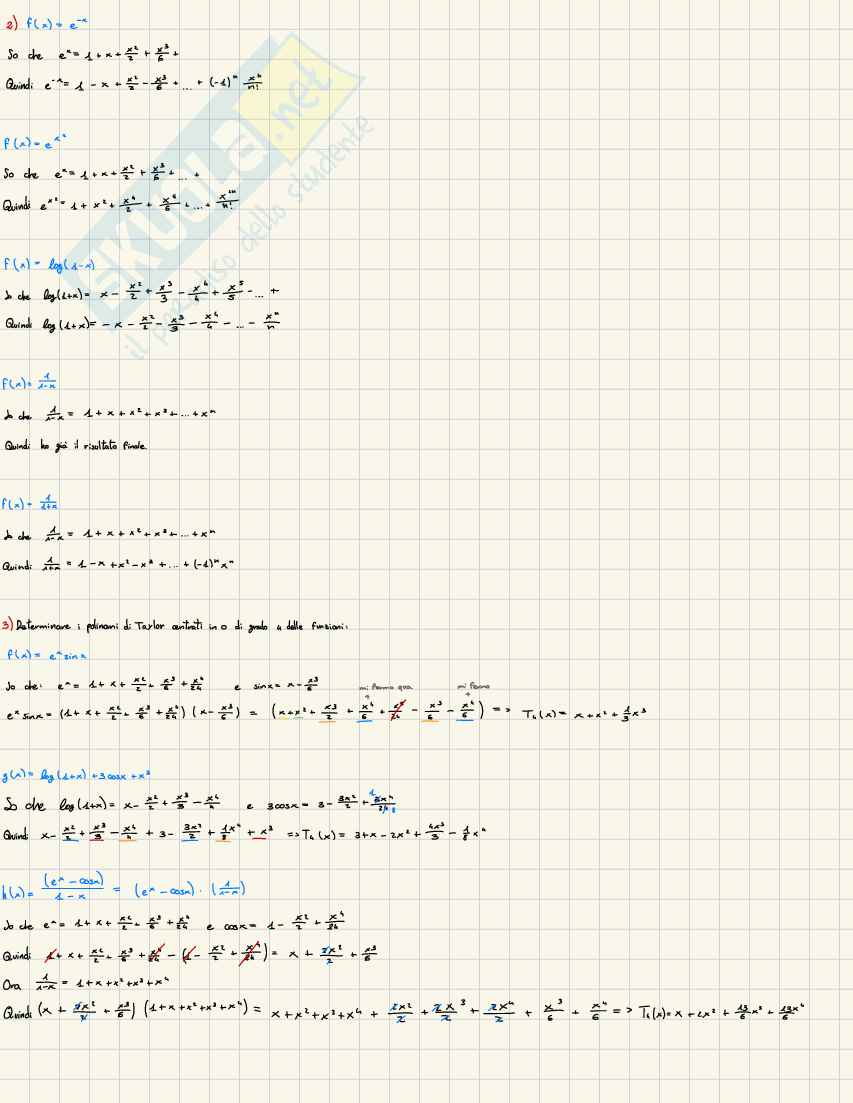 2) f(x) = e^{-x}
So che e^x = 1 + x + x²/2 + x³/6 +
Quindi e^{-x} = 1 - x + x²/2 - x³/6 + ... + (-1)^n x^n/n!
f(x) = e^{x²}
So che e^x = 1 + x + x²/2 + x³/6 + ... +
Quindi e^{x²} = 1 + x² + x⁴/2 + x⁶/6 + ... + x^{2n}/n!
f(x) = log(1-x)
So che log(1+x) = x - x²/2 + x³/3 - x⁴/4 + x⁵/5 - ... +
Quindi log(1+x) = - x - x²/2 - x³/3 - x⁴/4 - ... - x^n/n
f(x) = 1/(1-x)
So che 1/(1-x) = 1 + x + x² + x³ + ... + x^n
Quindi ho già il risultato finale.
f(x) = 1/(1+x)
So che 1/(1-x) = 1 + x + x² + x³ + ... + x^n
Quindi 1/(1+x) = 1 - x + x² - x³ + ... + (-1)^n x^n
3) Determinare i polinomi di Taylor centrati in 0 di grado 4 delle funzioni:
f(x) = e^x sin x
So che: e^x = 1 + x + x²/2 + x³/6 + x⁴/24 e sin x = x - x³/6
mi fermo qua mi fermo
e^x sin x = (1 + x + x²/2 + x³/6 + x⁴/24) (x - x³/6) = (x + x² + x³/2 + x⁴/6 + x⁵/24 - x³/6 - x⁴/6) => T₄(x) = x + x² + 1/3 x³
g(x) = log(1+x) + 3cosx + x³
So che log(1+x) = x - x²/2 + x³/3 - x⁴/4 e 3cosx = 3 - 3x²/2 + 3x⁴/24 1 8
Quindi x - x²/2 + x³/3 - x⁴/4 + 3 - 3x²/2 + 1/8 x⁴ + x³ => T₄(x) = 3 + x - 2x² + 4x³/3 - 1/8 x⁴
h(x) = (e^x - cosx)/(1-x) = (e^x - cosx) · (1/(1-x))
So che e^x = 1 + x + x²/2 + x³/6 + x⁴/24 e cosx = 1 - x²/2 + x⁴/24
Quindi 1 + x + x²/2 + x³/6 + x⁴/24 - (1 - x²/2 + x⁴/24) = x + 2x²/2 + x³/6
Ora 1/(1-x) = 1 + x + x² + x³ + x⁴
Quindi (x + 2x²/2 + x³/6) (1 + x + x² + x³ + x⁴) = x + x² + x³ + x⁴ + 2x²/2 + 2x³/2 + 2x⁴/2 + x³/6 + x⁴/6 => T₄(x) = x + 2x² + 13/6 x³ + 13/6 x⁴
SKUOLA.net
il paradiso dello studente